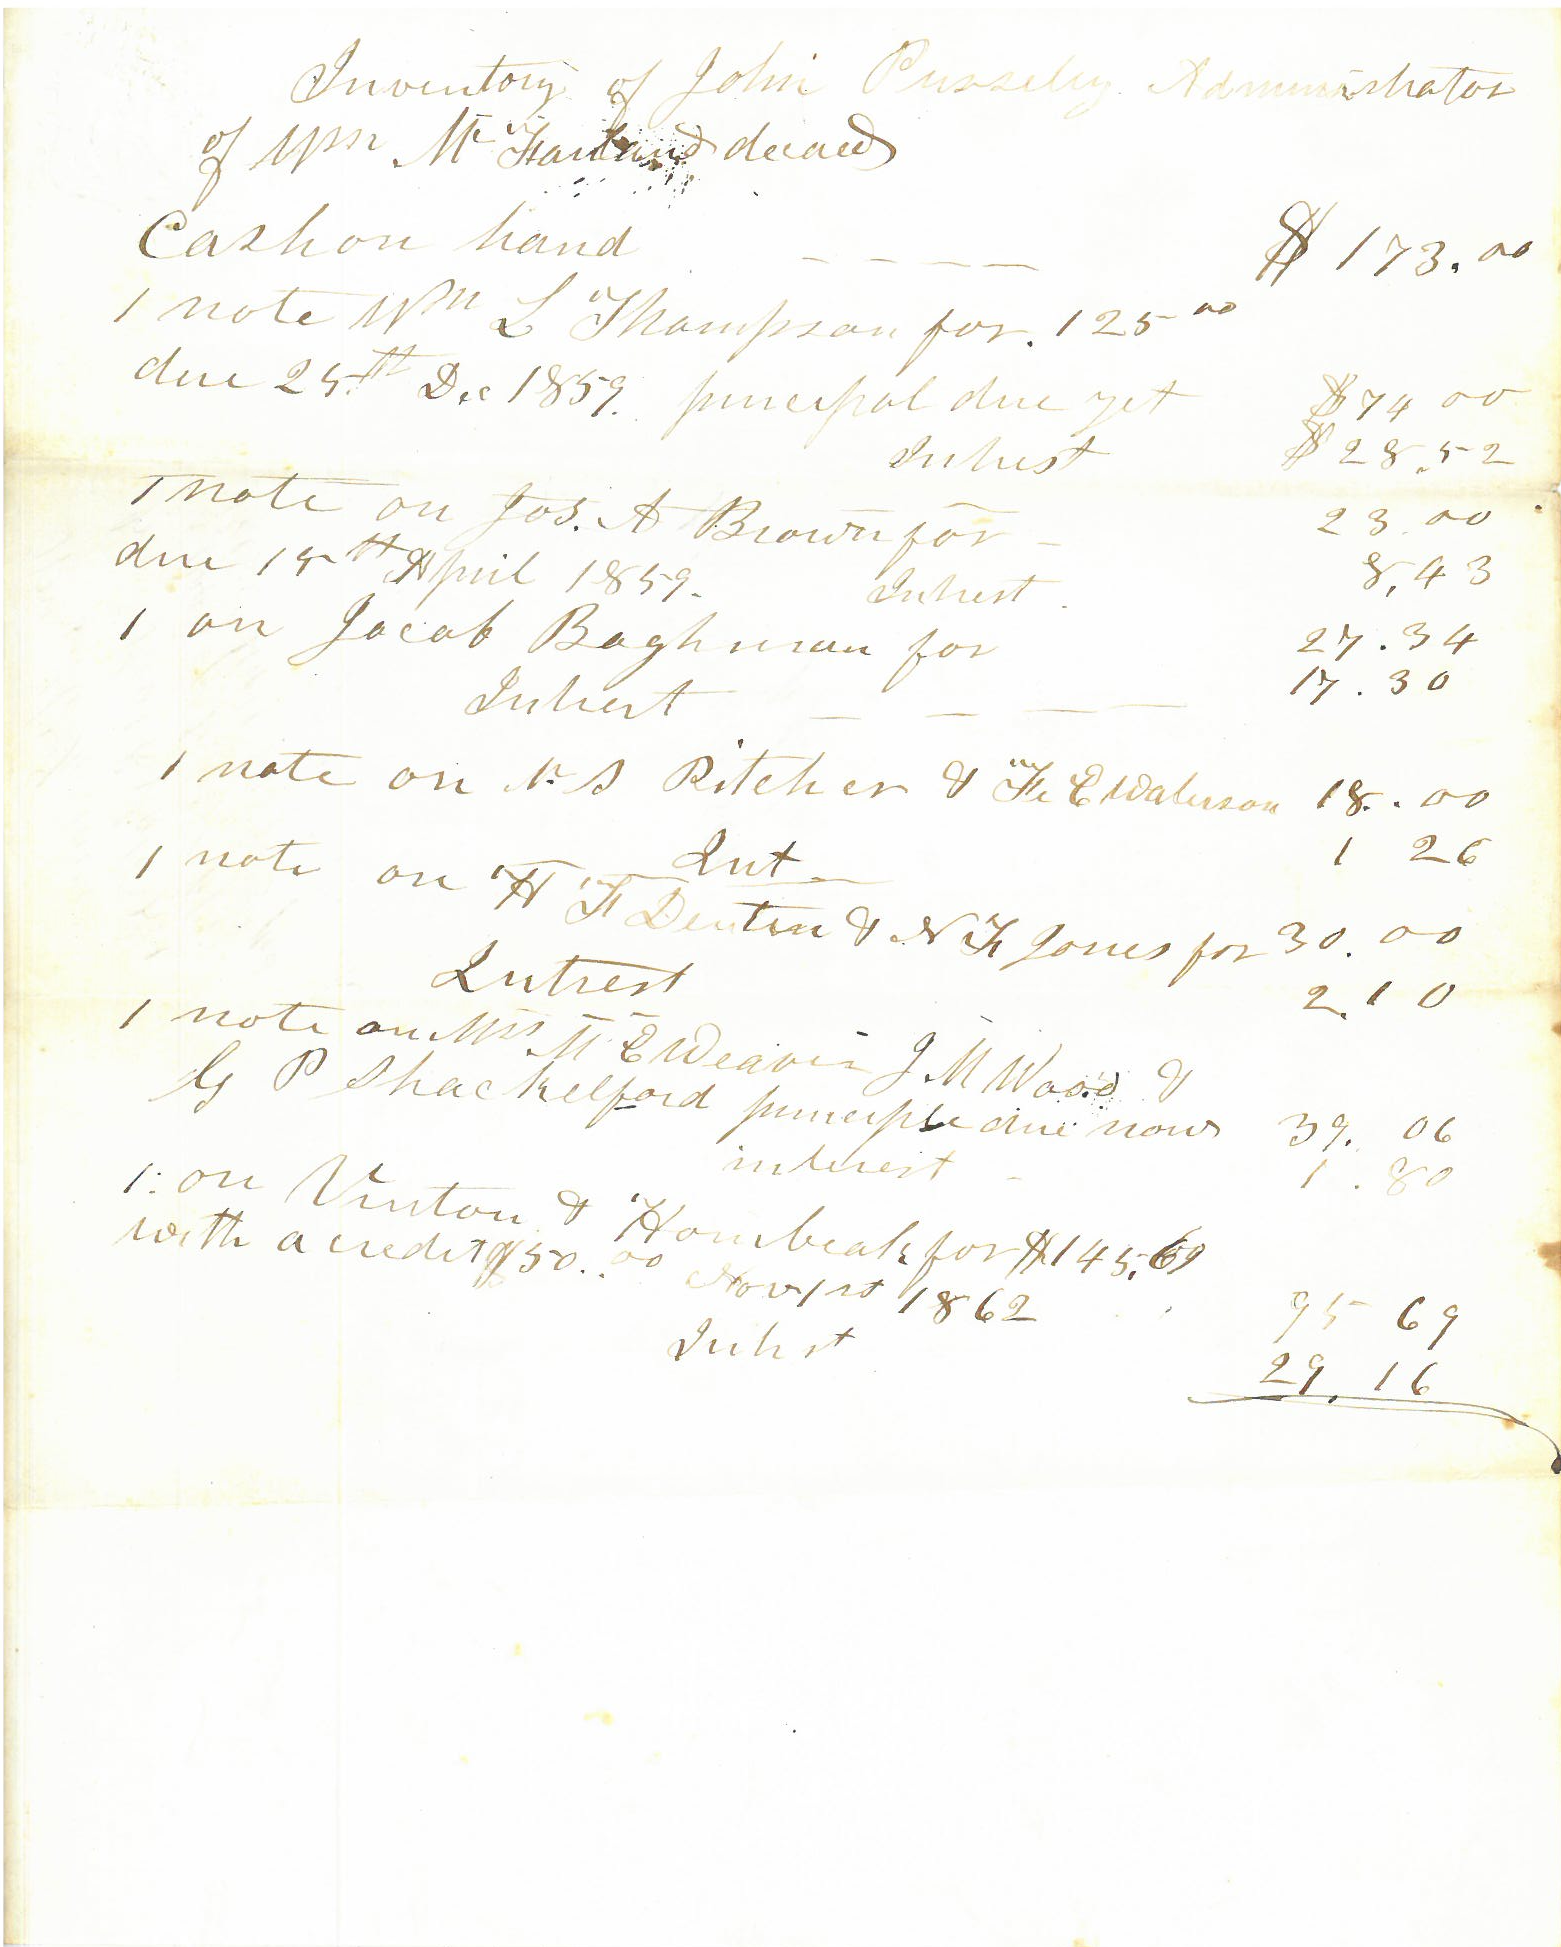 Inventory of John Pusseley Administrator
of Wm McFarland deceased
Cash on hand $173.00
1 note Wm L Thompson for. 125 00
due 25th Dec 1859. principal due yet $74 00
Intrest $28.52
1 note on Jos. A Brown for 23.00
due 15th April 1859. Intrest 8,43
1 on Jacob Baghman for 27.34
Intrest 17.30
1 note on S Ritcher & F E Waterson 18.00
Int 1 26
1 note on H F Denton & N F Jones for 30.00
Intrest 2.10
1 note on Mss M E Weaver J M Wood &
G P Shackelford principle due now 39.06
interest 1.80
1: on Vinton & Hornbeak for $145,69
with a credit of $50.00 Nov 1st 1862 95 69
Intrst 29.16